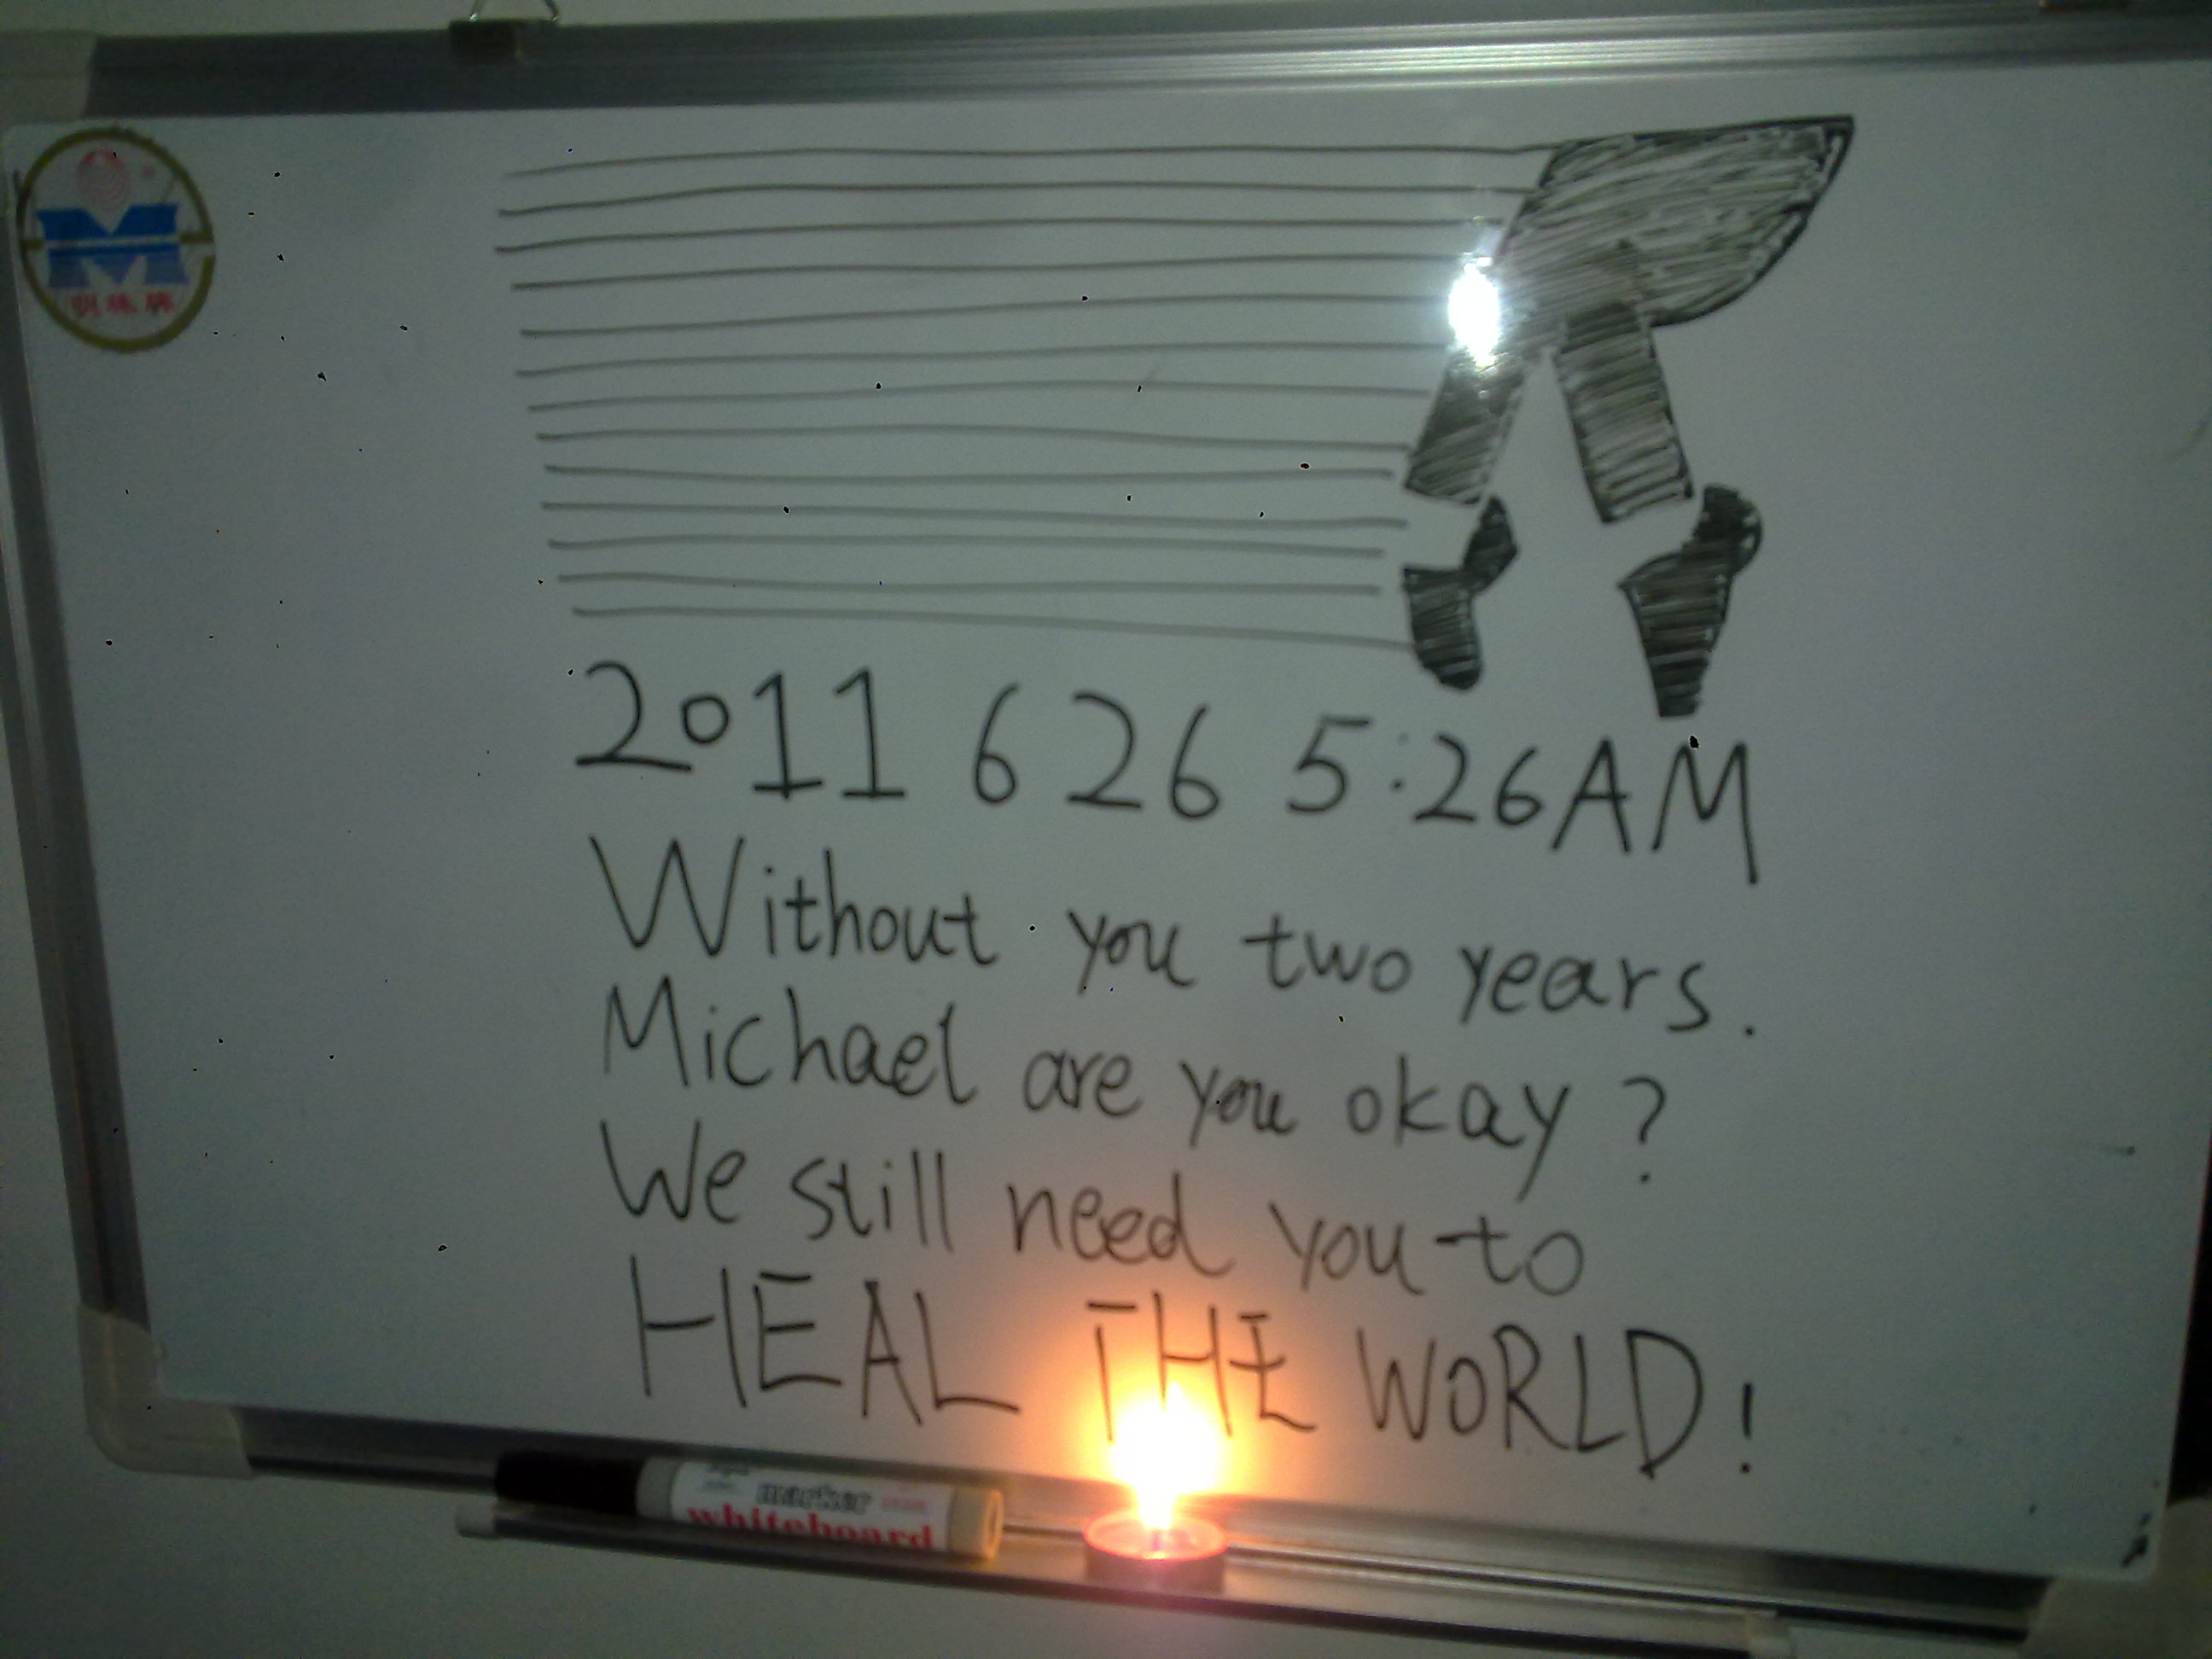 2011 6 26 5:26AM
Without you two years.
Michael are you okay?
We still need you to
HEAL THE WORLD!
marker
whiteboard